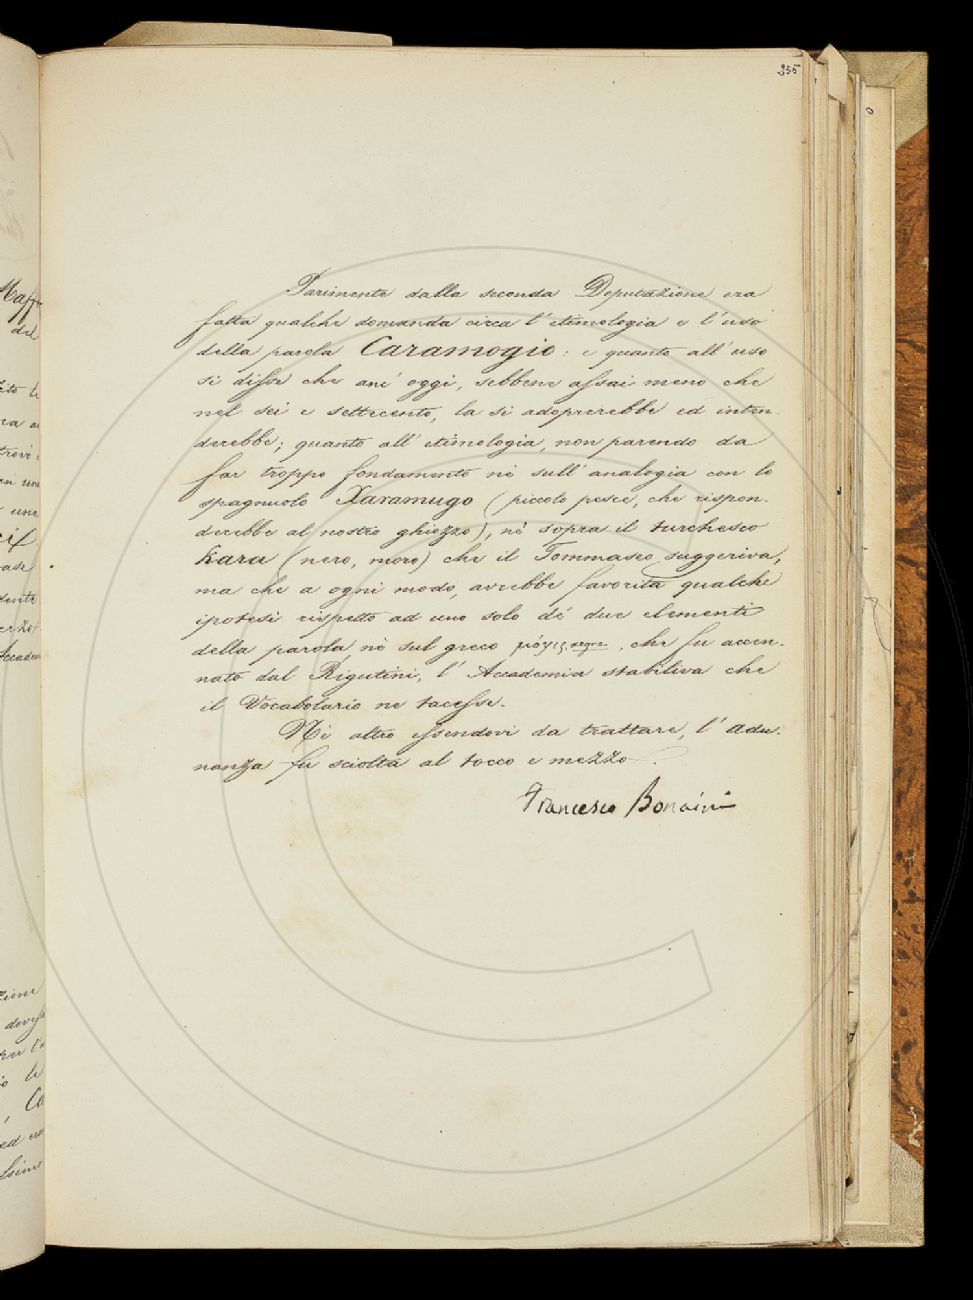 355
Parimente dalla seconda Deputazione era
fatta qualche domanda circa l'etimologia e l'uso
della parola Caramogio: e quanto all'uso
si disse che anc' oggi, sebbene assai meno che
nel sei e settecento, la si adoprerebbe ed inten-
derebbe; quanto all' etimologia, non parendo da
far troppo fondamento nè sull' analogia con lo
spagnuolo Xaramugo (piccolo pesce, che rispon-
derebbe al nostro ghiozzo), nè sopra il turchesco
kara (nero, moro) che il Tommaseo suggeriva,
ma che a ogni modo, avrebbe favorita qualche
ipotesi rispetto ad uno solo de' due elementi
della parola, nè sul greco μόγις, che fu accen-
nato dal Rigutini, l' Accademia stabiliva che
il Vocabolario ne tacesse.
Nè altro essendovi da trattare, l' adu-
nanza fu sciolta al tocco e mezzo.
Francesco Bonaini